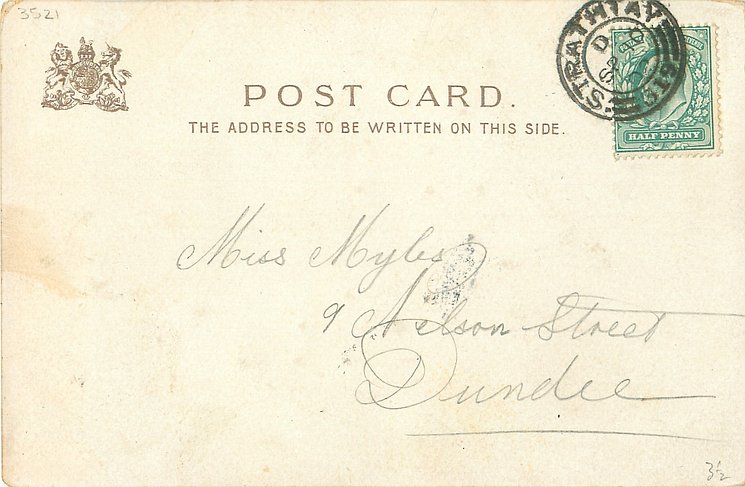 3521
POST CARD.
THE ADDRESS TO BE WRITTEN ON THIS SIDE.
STRATHTAY
HALF PENNY
Miss Myles
9 Nelson Street
Dundee
3½